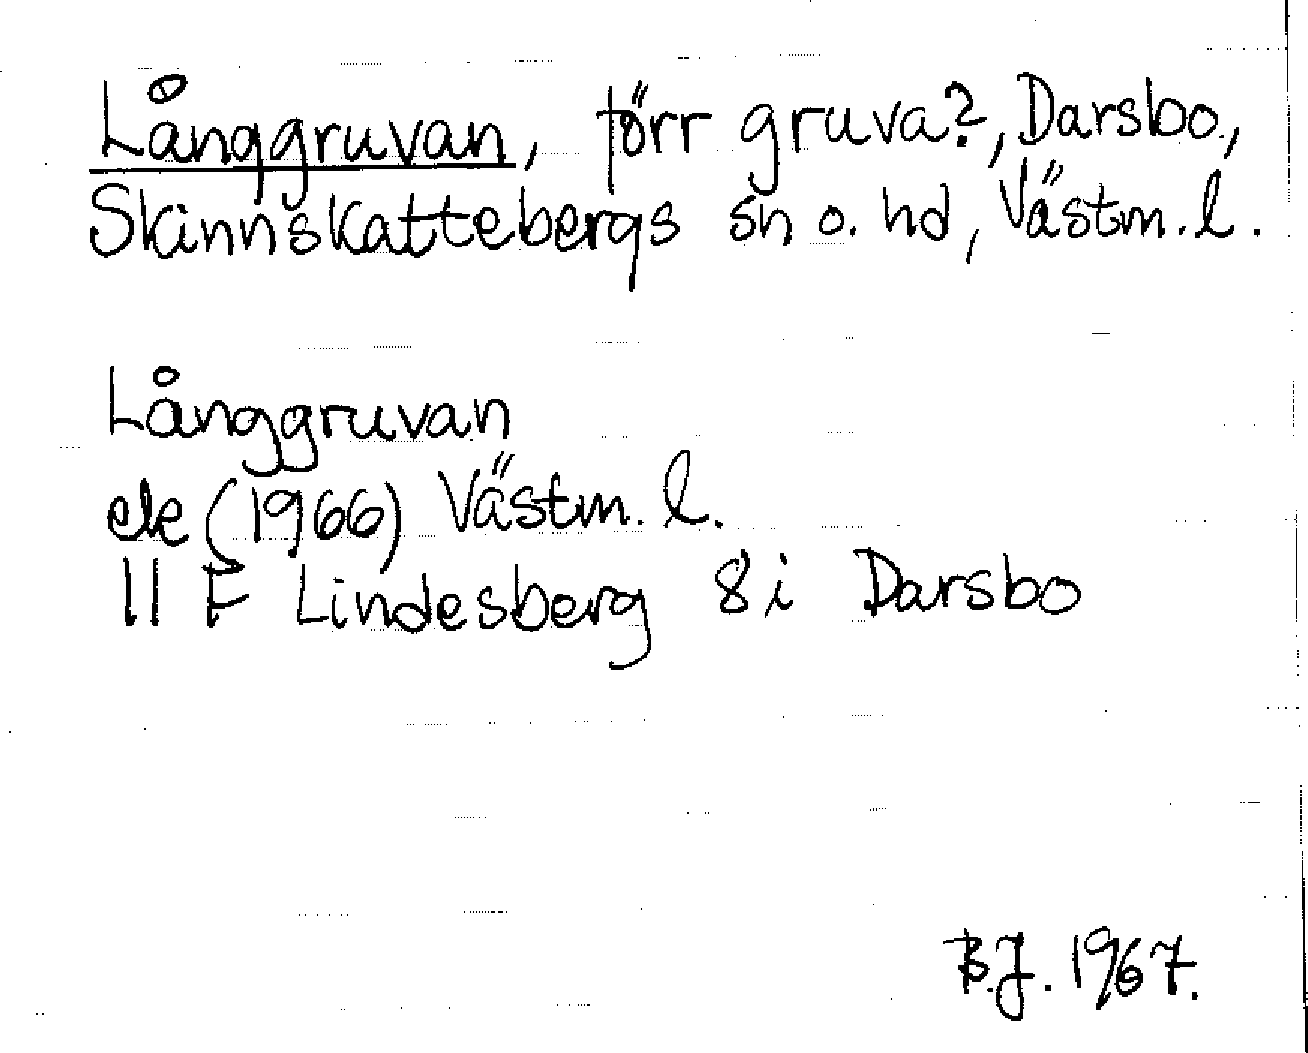 Långgruvan, förr gruva?, Darsbo,
Skinnskattebergs sn o. hd, Västm. l.
Långgruvan
ek (1966) Västm. l.
11 F Lindesberg 8i Darsbo
B.J. 1967.